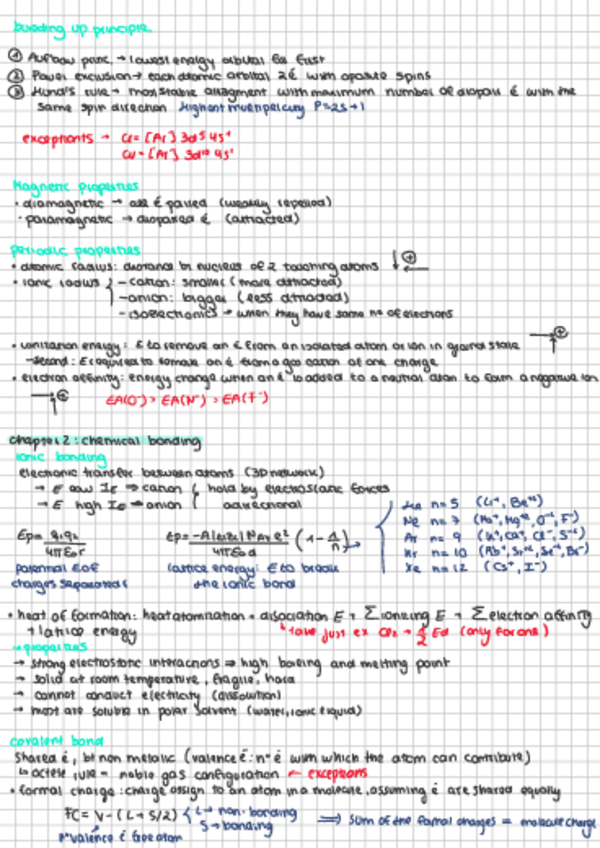 building up principle
① Aufbau princ. → lowest energy orbital
② Pauli exclusion → each atomic orbital 2ē with oposite spins
③ Hund's rule → most stable with maximum number of ē with the
same spin direction Highest P=2S+1
exceptions → Cr = [Ar] 3d⁵ 4s¹
Cu = [Ar] 3d¹⁰ 4s¹
Magnetic properties
• diamagnetic → all ē paired (weakly repelled)
• paramagnetic → ē (attracted)
Periodic properties
• atomic radius: distance bt nucleus of 2 touching atoms
• ionic radius - cation: smaller (more attracted)
- anion: bigger (less attracted)
- isoelectronics → when they have same nº of electrons
• ionization energy: E to remove an ē from an isolated atom or ion in ground state
→ second: E required to remove an ē from a gas cation of one charge
• electron affinity: energy change when an ē is added to a neutral atom to form a negative ion
EA(O⁻) > EA(N⁻) > EA(F⁻)
chapter 2: chemical bonding
ionic bonding
electronic transfer between atoms (3D network)
→ E low IE ⇒ cation hold by electrostatic forces
→ E high IE ⇒ anion
n=5 (Li⁺, Be⁺²)
Ne n=7
Ar n=9
Kr n=10
Xe n=12 (Cs⁺, I⁻)
Ep = q₁q₂ / 4πε₀r
Ep = -A|z₁z₂| N_A e² / 4πε₀d (1 - 1/n)
potential E of
charges separated
lattice energy: E to break
the ionic bond
• heat of formation: heat atomization + disociation E + Σ ionizing E + Σ electron affinity
+ lattice energy
take just ex → ½ Ed (only for one)
→ properties
→ strong electrostatic interactions ⇒ high boiling and melting point
→ solid at room temperature, fragile, hard
→ cannot conduct electricity (dissolution)
→ most are soluble in polar solvent (water, ionic liquid)
covalent bond
shared ē, bt non metalic (valence ē: nº ē with which the atom can contribute)
↳ octete rule = noble gas configuration ← exceptions
• formal charge: charge assign to an atom in a molecule, assuming ē are shared equally
FC = V - (L + S/2) L → non-bonding
S → bonding
⇒ sum of the formal charges = molecule charge
nº valence ē free atom